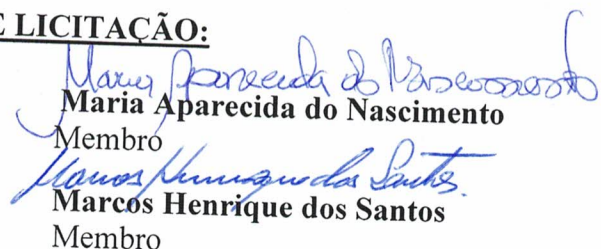 E LICITAÇÃO:
Maria Aparecida do Nascimento
Maria Aparecida do Nascimento
Membro
Marcos Henrique dos Santos
Marcos Henrique dos Santos
Membro